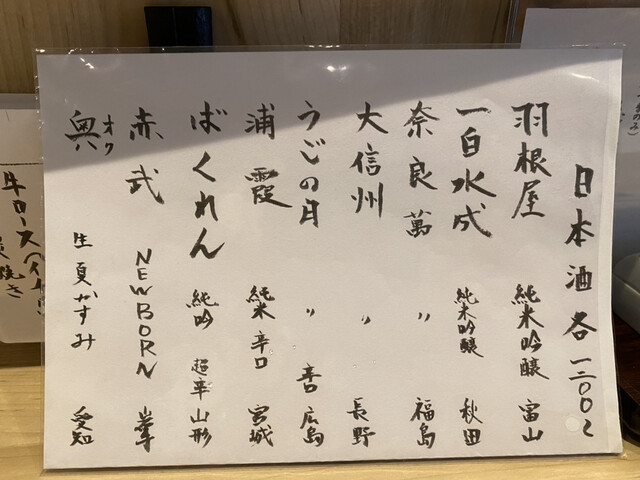 日本酒各一二〇〇〜
羽根屋 純米吟醸 富山
一白水成 純米吟醸 秋田
奈良萬 〃 福島
大信州 〃 長野
うごの月 〃 辛口 広島
浦霞 純米 辛口 宮城
ばくれん 純吟 超辛 山形
赤武 NEWBORN 岩手
奥 オク 生 夏かすみ 愛知
牛ロース
焼き